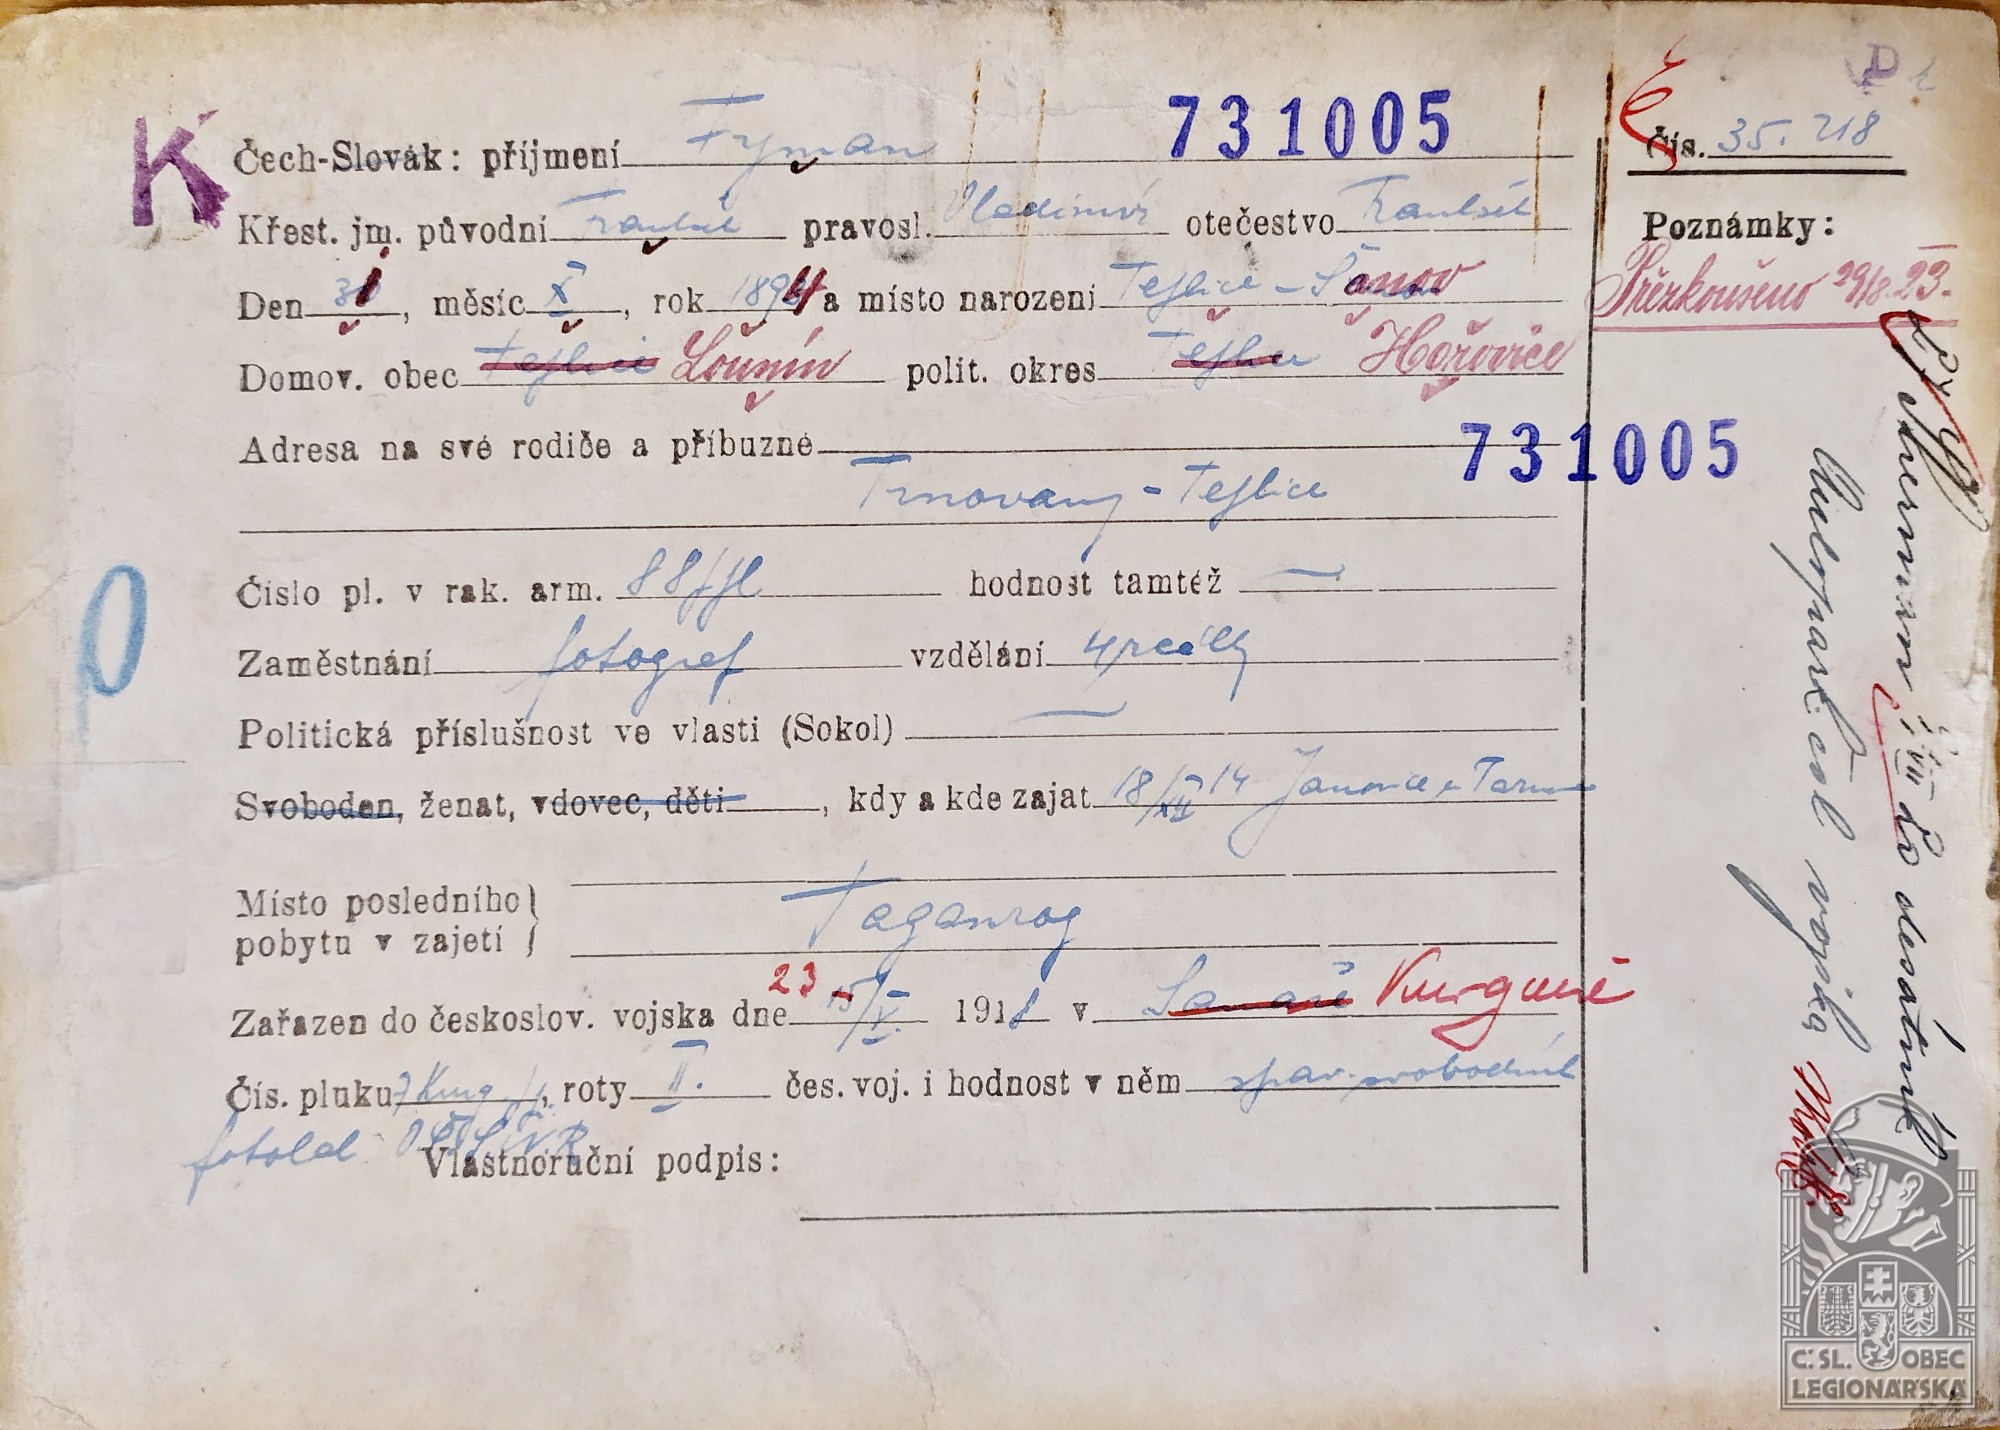 K
Čech-Slovák: příjmení Fyman 731005
Čís. 35.218
Křest. jm. původní František pravosl. Vladimír otečestvo František
Poznámky:
Den 31, měsíc X, rok 1894 a místo narození Teplice - Šanov
Přezkoušeno 29/8.23.
Domov. obec Teplice Lounín polit. okres Teplice Hořovice
Adresa na své rodiče a příbuzné
731005
Trnovany - Teplice
Číslo pl. v rak. arm. 88/ hodnost tamtéž —
Zaměstnání fotograf vzdělání 4 reálky
Politická příslušnost ve vlasti (Sokol) —
Svoboden, ženat, vdovec, děti, kdy a kde zajat 18/XII 14 Janovice
Místo posledního
pobytu v zajetí
Taganrog
Zařazen do českoslov. vojska dne 23 15/V. 1918 v Kurganě
Čís. pluku 7 Kurg, roty II. čes. voj. i hodnost v něm svobodník
fotood. OČSNR
Vlastnoruční podpis:
desátník
čsl vojska
Č. SL. OBEC
LEGIONÁŘSKÁ